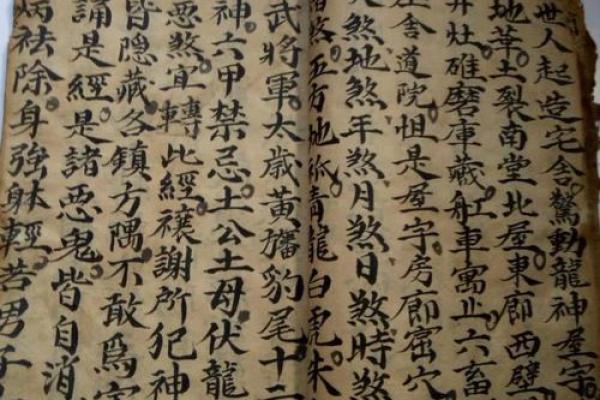 世人起造宅舍驚動龍神屋宇
地土裂南堂北屋東廊西壁
井灶碓磨庫藏舡車寓止六畜
舍道院但是屋宇房廊窟穴
煞地煞年煞月煞日煞時煞
煞五方地祇青龍白虎朱
武將軍太歲黃旛豹尾十二
神六甲禁忌土公土母伏龍
惡煞宜轉此經禳謝所犯神
皆隱藏各鎮方隅不敢爲害
誦是經是諸惡鬼皆自消
病祛除身強躰輕若男子